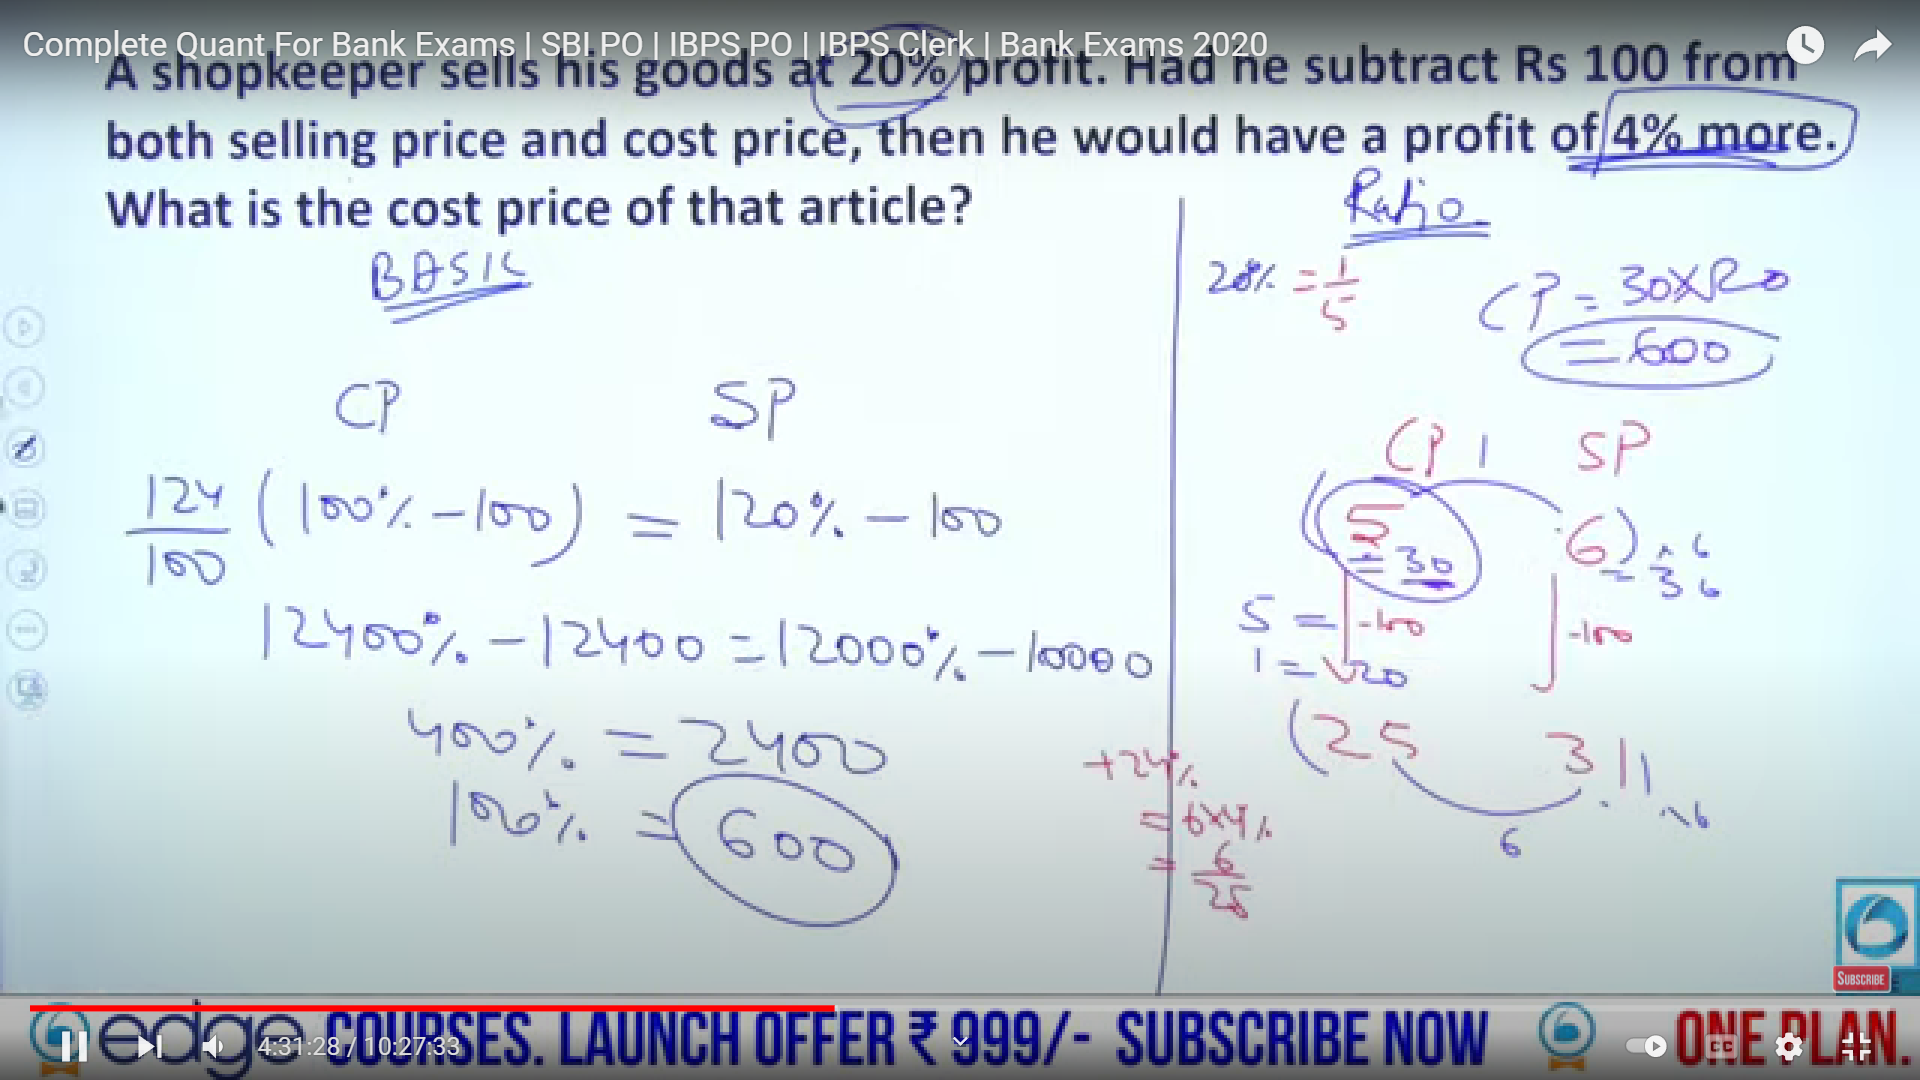 Complete Quant For Bank Exams | SBI PO | IBPS PO | IBPS Clerk | Bank Exams 2020
A shopkeeper sells his goods at 20% profit. Had he subtract Rs 100 from
both selling price and cost price, then he would have a profit of 4% more.
What is the cost price of that article?
BASIC
CP SP
124/100 (100% - 100) = 120% - 100
12400% - 12400 = 12000% - 10000
400% = 2400
100% = 600
Ratio
20% = 1/5
CP = 30×20
= 600
CP 1 SP
5 6) ×6
= 30 = 36
5 = -100 -100
1 = 20
(25 31) ×6
6
+24%
= 6×4%
= 6/25
SUBSCRIBE
edge COURSES. LAUNCH OFFER ₹ 999/- SUBSCRIBE NOW ONE PLAN.
4:31:28 / 10:27:33
CC